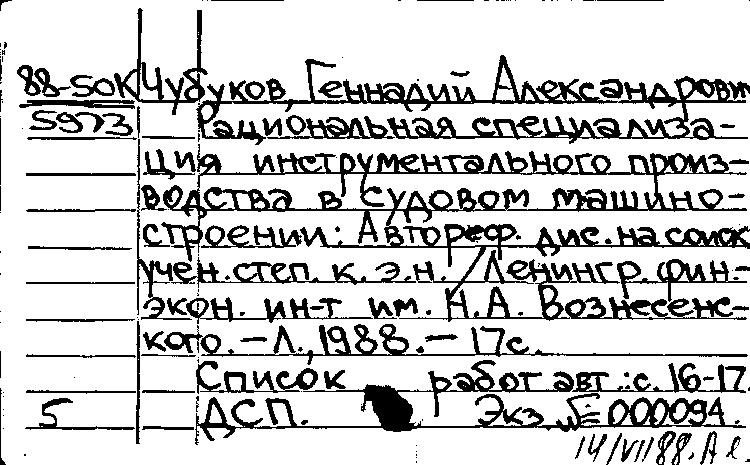 88-50К Чубуков, Геннадий Александрович
5973 Рациональная специализа-
ция инструментального произ-
водства в судовом машино-
строении: Автореф. дис. на соиск
учен. степ. к. э. н. / Ленингр. фин.-
экон. ин-т им. Н. А. Вознесенс-
кого. – Л., 1988. – 17с.
Список работ авт.: с. 16-17.
5 ДСП. Экз. № 000094.
14/VII 88.